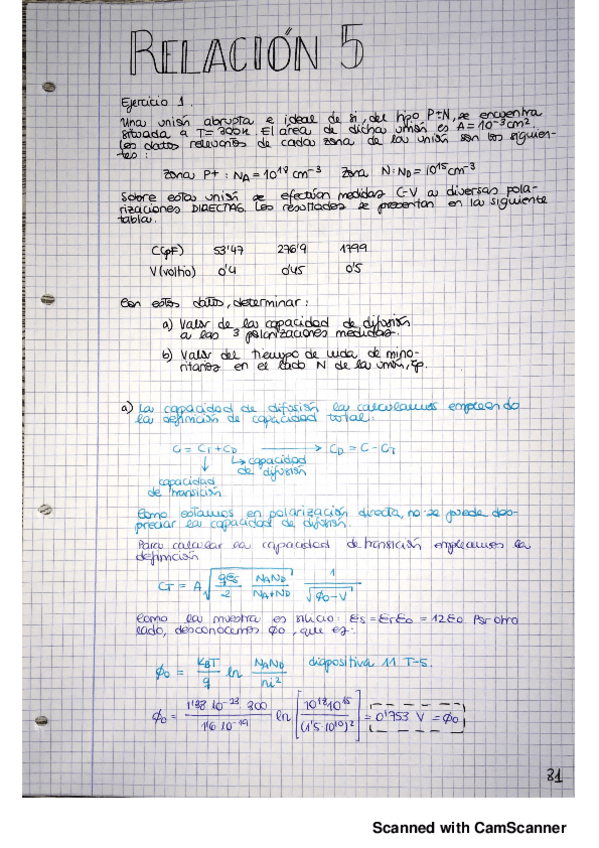 RELACIÓN 5
Ejercicio 1.
Una unión abrupta e ideal de si, del tipo P+N, se encuentra
situada a T=300K. El área de dicha unión es A=10⁻³cm².
Los datos relevantes de cada zona de la unión son los siguien-
tes:
Zona P+: NA=10¹⁸cm⁻³ Zona N: ND=10¹⁵cm⁻³
Sobre estas unión se efectúan medidas C-V a diversas pola-
rizaciones DIRECTAS. Los resultados se presentan en la siguiente
tabla.
C(pF) 53'47 276'9 1799
V(voltio) 0'4 0'45 0'5
Con estos datos, determinar:
a) Valor de la capacidad de difusión
a las 3 polarizaciones medidas.
b) Valor del tiempo de vida de mino-
ritarios en el lado N de la unión, τp.
a) La capacidad de difusión la calculamos empleando
la definición de capacidad total:
C = CT + CD → CD = C - CT
↓ ↳ capacidad
de difusión
capacidad
de transición
Como estamos en polarización directa, no se puede des-
preciar la capacidad de difusión.
Para calcular la capacidad de transición empleamos la
definición
CT = A √(qεs/2 · NAND/(NA+ND)) · 1/√(ϕ0-V)
Como la muestra es silicio: εs = εrε0 = 12ε0. Por otro
lado, desconocemos ϕ0, que es:
ϕ0 = KBT/q ln NAND/ni² diapositiva 11 T-5.
ϕ0 = 1'38·10⁻²³·300/1'6·10⁻¹⁹ ln [10¹⁸10¹⁵/(1'5·10¹⁰)²] = 0'753 V = ϕ0
81
Scanned with CamScanner